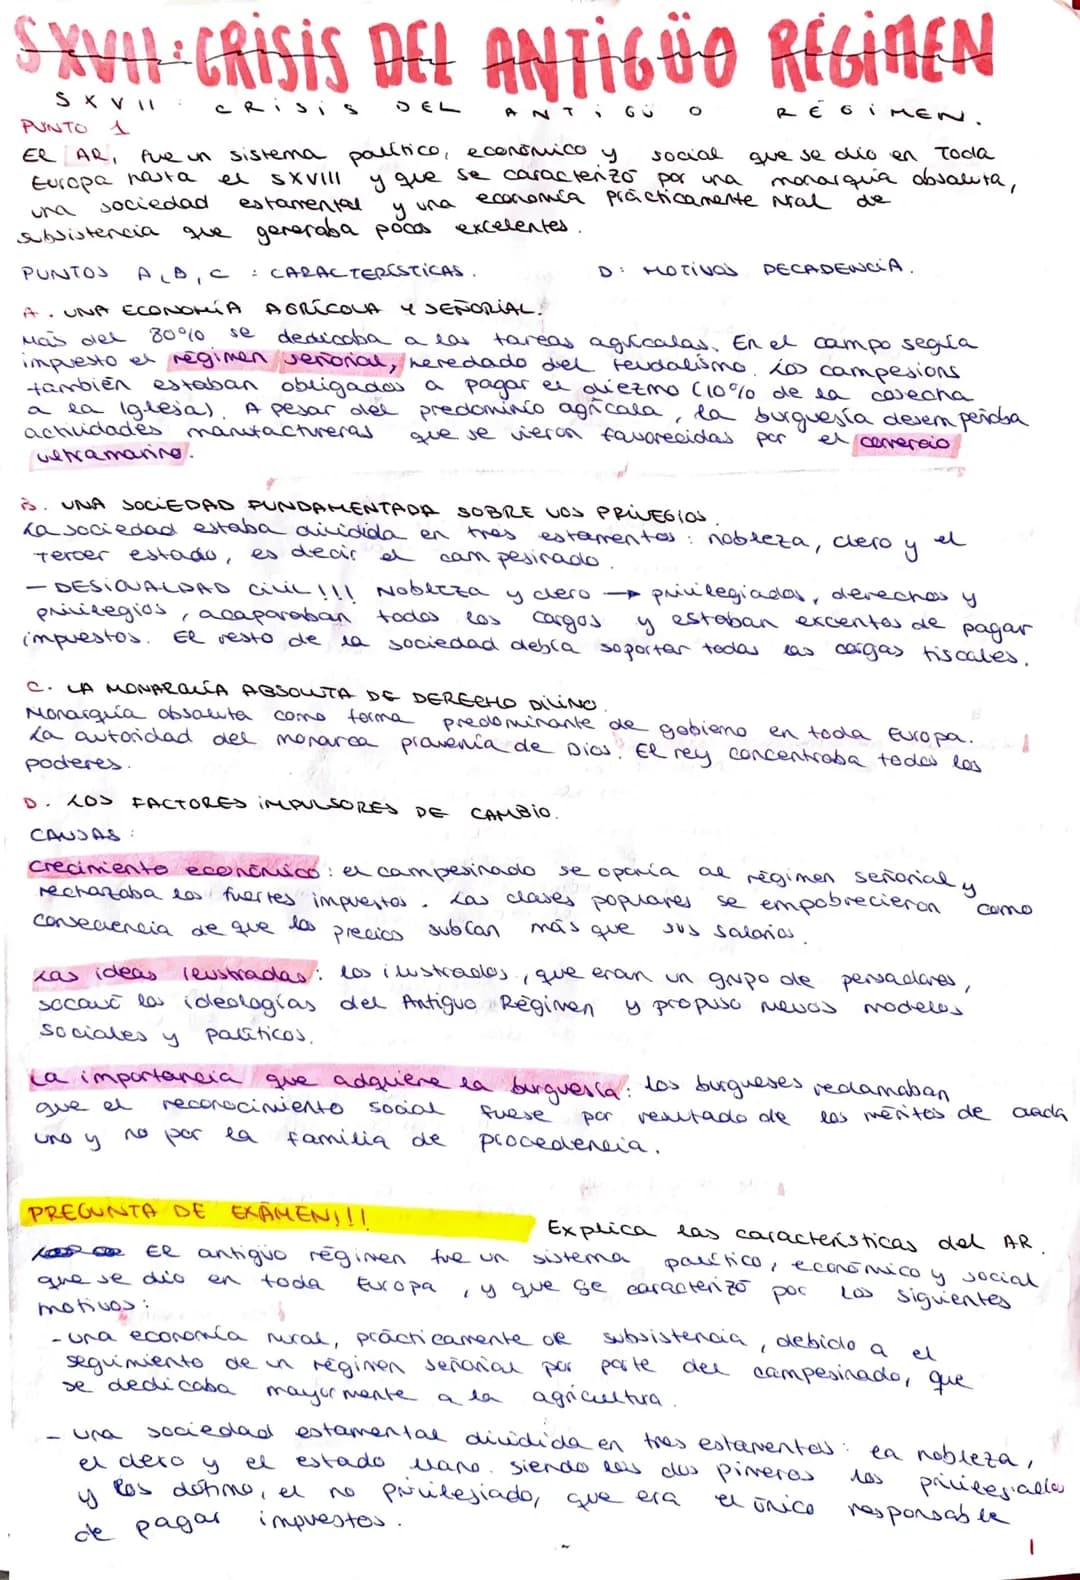 SXVII: CRiSiS DEL ANTiGÜO RÉGiMEN
SXVII: CRiSiS DEL ANTiGÜO RÉGiMEN.
PUNTO 1
El AR, fue un sistema político, económico y social que se dio en Toda
Europa hasta el SXVIII y que se caracterizó por una monarquía absoluta,
una sociedad estamental y una economía prácticamente rural de
subsistencia que generaba pocos excelentes.
PUNTOS A, B, C : CARACTERÍSTICAS. D: MOTIVOS DECADENCIA.
A. UNA ECONOMÍA AGRÍCOLA Y SEÑORIAL.
Más del 80% se dedicaba a las tareas agrícolas. En el campo seguía
impuesto el régimen señorial, heredado del feudalismo. Los campesions
también estaban obligados a pagar el diezmo (10% de la cosecha
a la Iglesia). A pesar del predominio agrícola, la burguesía desempeñaba
actividades manufactureras que se vieron favorecidas por el comercio
ultramarino.
B. UNA SOCIEDAD FUNDAMENTADA SOBRE LOS PRIVEGIOS.
La sociedad estaba dividida en tres estamentos: nobleza, clero y el
Tercer estado, es decir el campesinado.
— DESIGUALDAD CIVIL!!! Nobleza y clero → privilegiados, derechos y
privilegios, acaparaban todos los cargos y estaban excentos de pagar
impuestos. El resto de la sociedad debía soportar todas las cargas fiscales.
C. LA MONARQUÍA ABSOLUTA DE DERECHO DIVINO.
Monarquía absoluta como forma predominante de gobierno en toda Europa.
La autoridad del monarca provenía de Dios. El rey concentraba todos los
poderes.
D. LOS FACTORES IMPULSORES DE CAMBIO.
CAUSAS:
Crecimiento económico: el campesinado se oponía al régimen señorial y
rechazaba los fuertes impuestos. Las clases populares se empobrecieron como
consecuencia de que los precios subían más que sus salarios.
Las ideas ilustradas: los ilustrados, que eran un grupo de pensadores,
socavó las ideologías del Antiguo Régimen y propuso nuevos modelos
sociales y políticos.
La importancia que adquiere la burguesía: los burgueses reclamaban
que el reconocimiento social fuese por resultado de los méritos de cada
uno y no por la familia de procedencia.
PREGUNTA DE EXÁMEN!!! Explica las características del AR.
El antigüo régimen fue un sistema político, económico y social
que se dio en toda Europa, y que se caracterizó por los siguientes
motivos:
- una economía rural, prácticamente de subsistencia, debido a el
seguimiento de un régimen señorial por parte del campesinado, que
se dedicaba mayormente a la agricultura.
- una sociedad estamental dividida en tres estamentos: la nobleza,
el clero y el estado llano. siendo los dos primeros los
y el no privilegiado, que era el único responsable
de pagar impuestos.
1